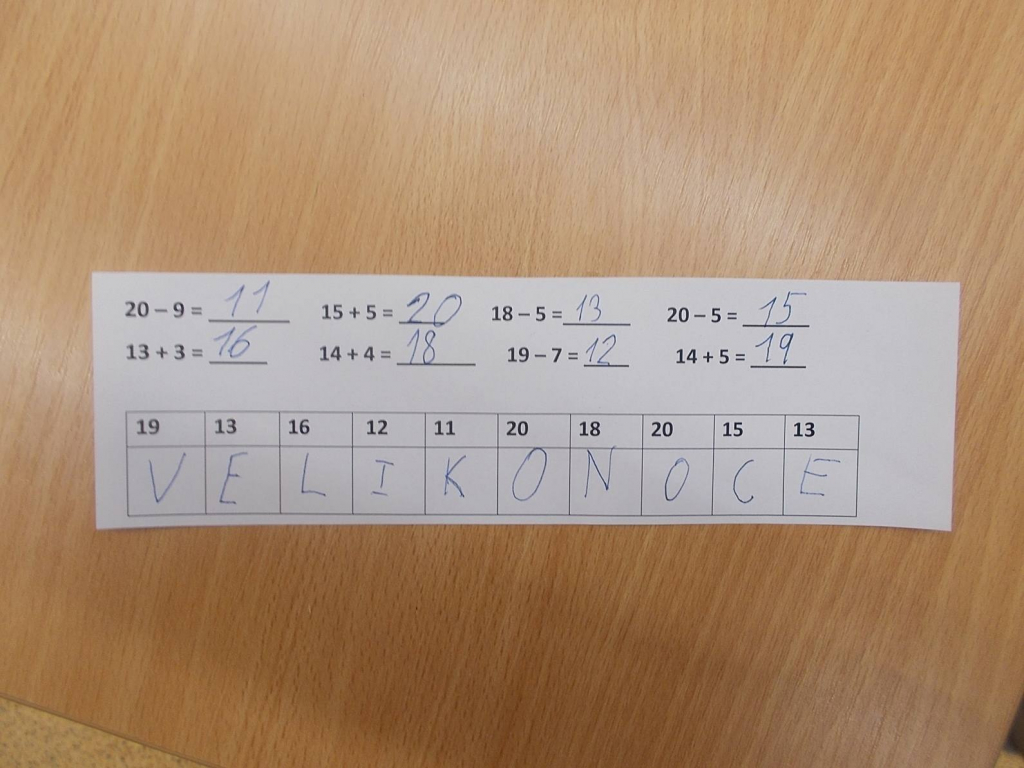 20 – 9 = 11 15 + 5 = 20 18 – 5 = 13 20 – 5 = 15
13 + 3 = 16 14 + 4 = 18 19 – 7 = 12 14 + 5 = 19
19 13 16 12 11 20 18 20 15 13
V E L I K O N O C E